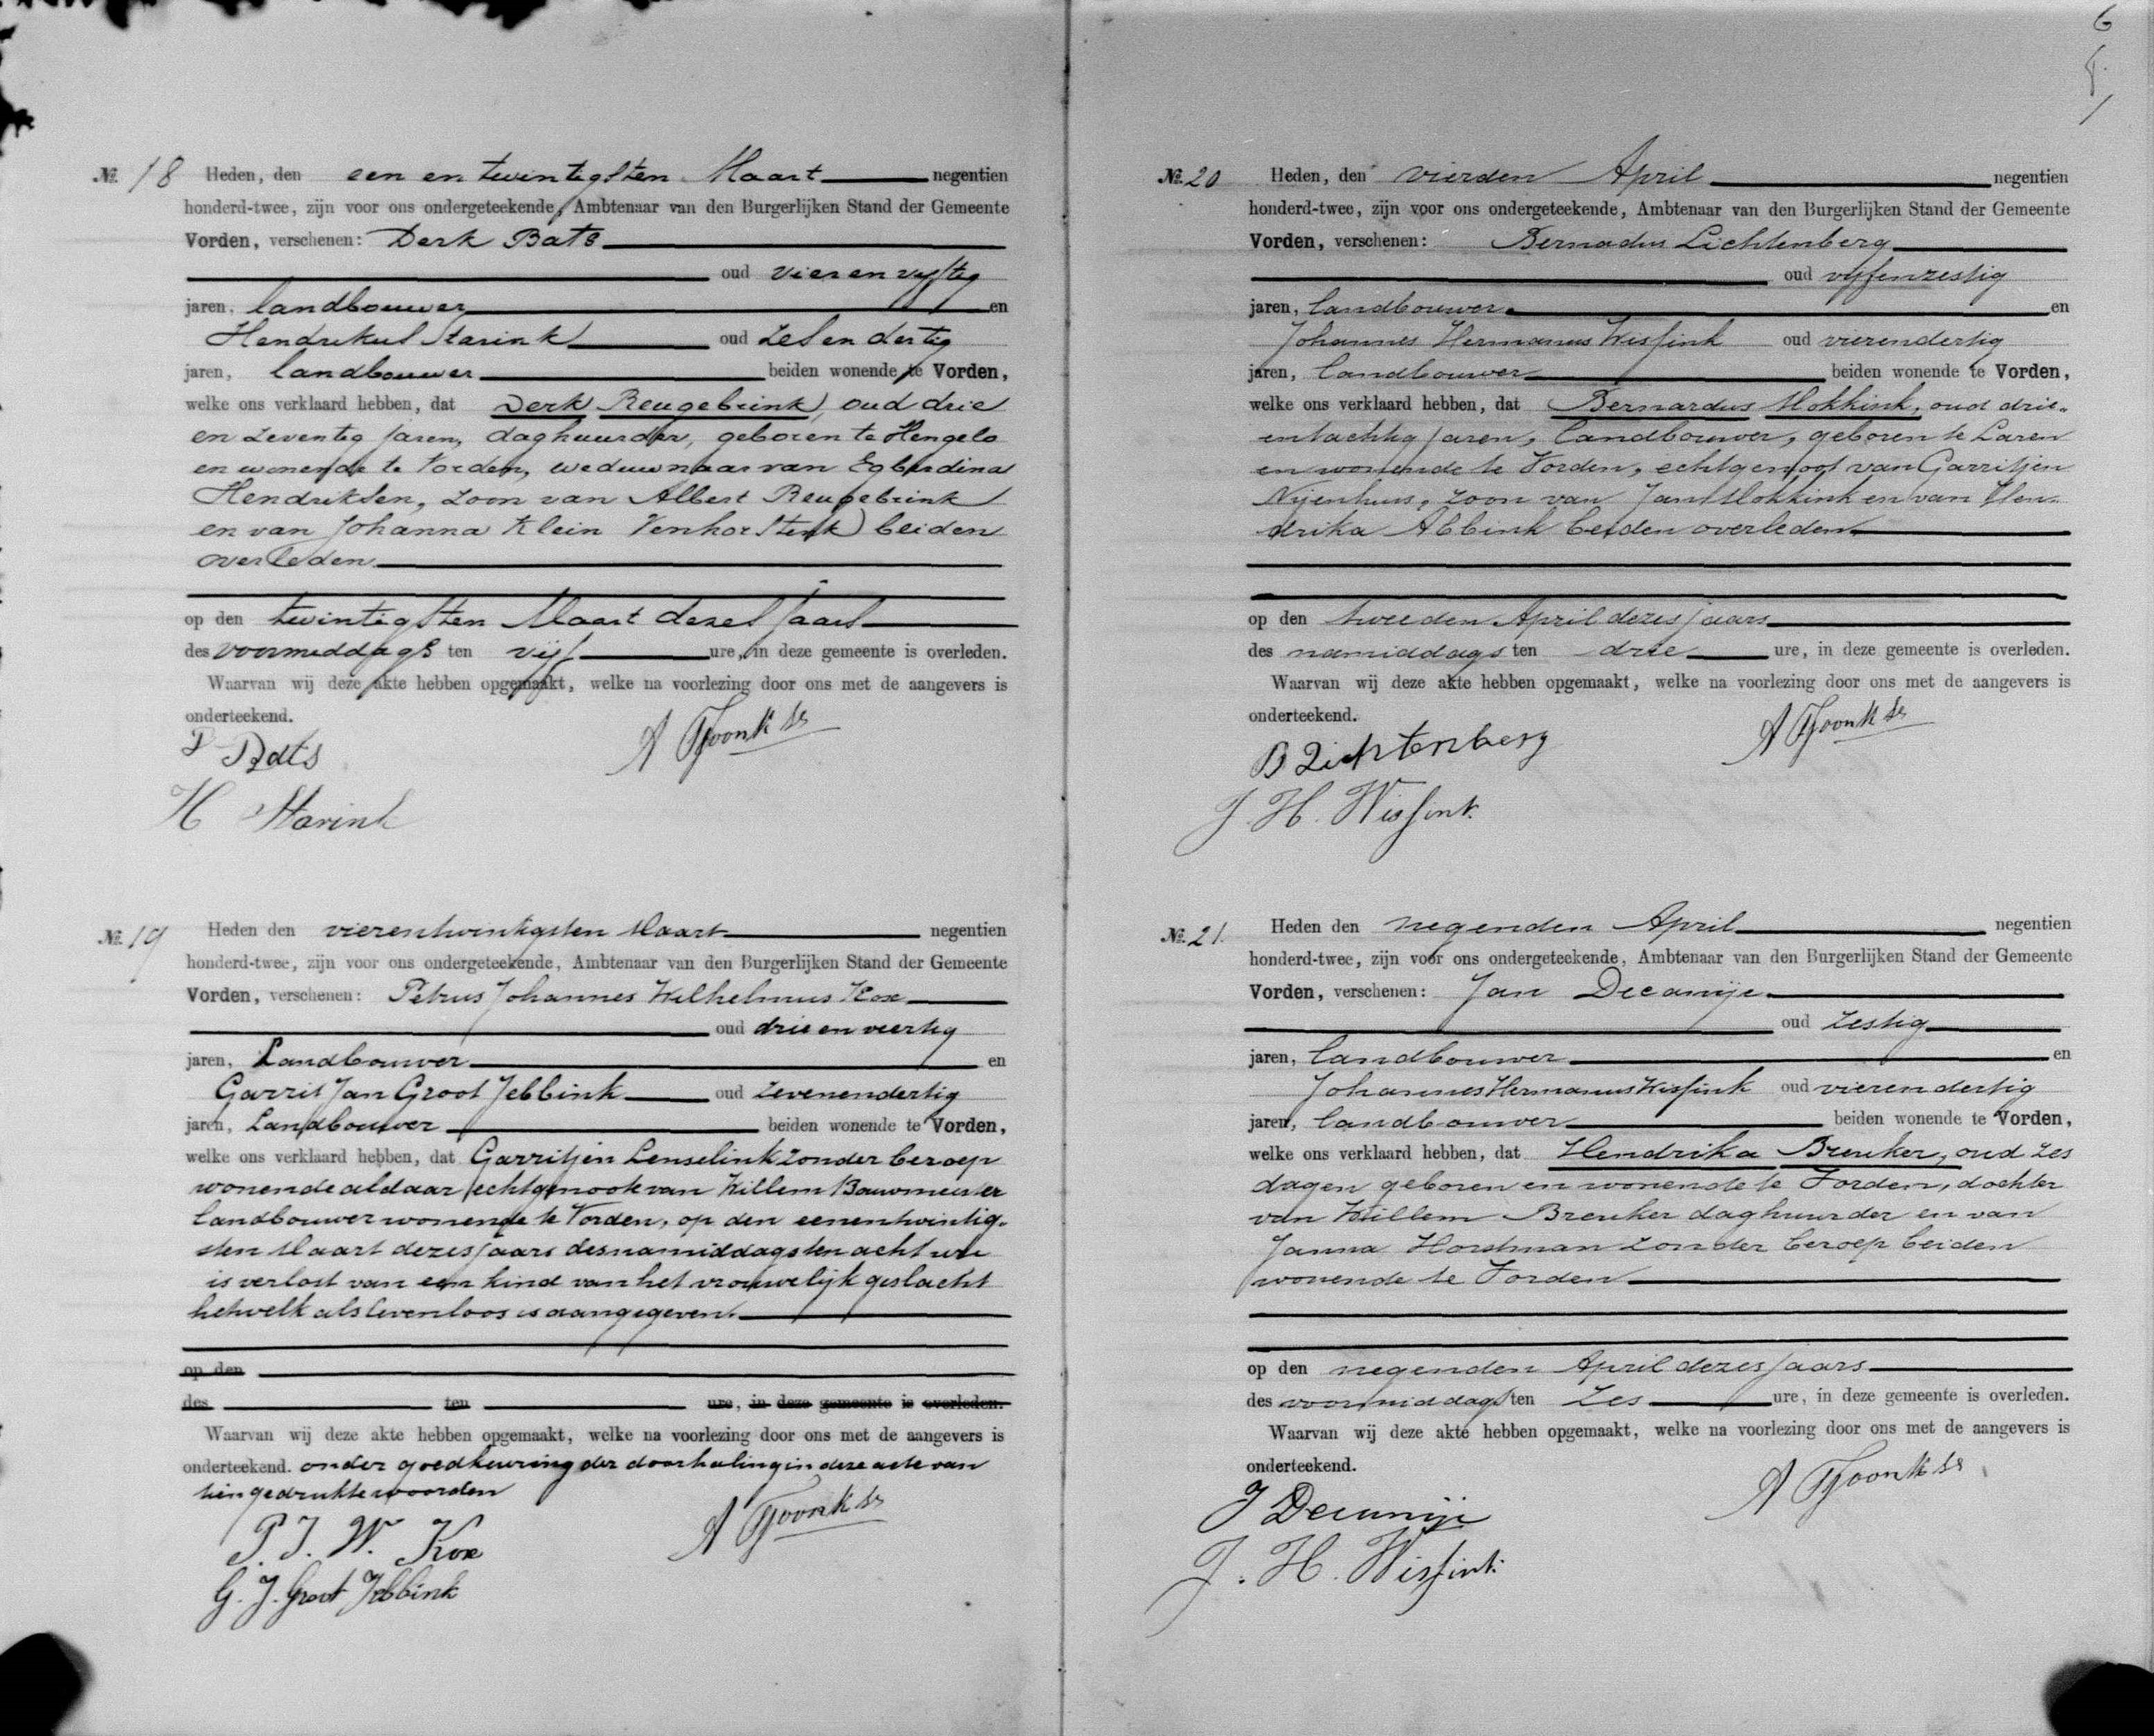 № 18 Heden, den een en twintigsten Maart negentien
honderd-twee, zijn voor ons ondergeteekende, Ambtenaar van den Burgerlijken Stand der Gemeente
Vorden, verschenen: Derk Bats
oud vier en vijftig
jaren, landbouwer en
Hendrikus Starink oud zes en dertig
jaren, landbouwer beiden wonende te Vorden,
welke ons verklaard hebben, dat Derk Reugebrink, oud drie
en zeventig jaren, daghuurder, geboren te Hengelo
en wonende te Vorden, weduwnaar van Egberdina
Hendriksen, zoon van Albert Reugebrink
en van Johanna Klein Venhorstink beiden
overleden
op den twintigsten Maart dezes jaars
des voormiddags ten vijf ure, in deze gemeente is overleden.
Waarvan wij deze akte hebben opgemaakt, welke na voorlezing door ons met de aangevers is
onderteekend.
D Bats
H Starink
№ 19 Heden den vierentwintigsten Maart negentien
honderd-twee, zijn voor ons ondergeteekende, Ambtenaar van den Burgerlijken Stand der Gemeente
Vorden, verschenen: Petrus Johannes Wilhelmus Kox
oud drie en veertig
jaren, Landbouwer en
Garrit Jan Groot Jebbink oud zevenendertig
jaren, Landbouwer beiden wonende te Vorden,
welke ons verklaard hebben, dat Garritjen Lenselink zonder beroep
wonende aldaar echtgenoote van Willem Bouwmeester
landbouwer wonende te Vorden, op den eenentwintig-
sten Maart dezes jaars des namiddags ten acht ure
is verlost van een kind van het vrouwelijk geslacht
hetwelk als levenloos is aangegeven.
op den
des ten ure, in deze gemeente is overleden.
Waarvan wij deze akte hebben opgemaakt, welke na voorlezing door ons met de aangevers is
onderteekend. onder goedkeuring der doorhaling in deze acte van
tien gedrukte woorden
P. J. W. Kox
G. J. Groot Jebbink
6
№ 20 Heden, den vierden April negentien
honderd-twee, zijn voor ons ondergeteekende, Ambtenaar van den Burgerlijken Stand der Gemeente
Vorden, verschenen: Bernadus Lichtenberg
oud vijfenzestig
jaren, landbouwer en
Johannes Hermanus Wissink oud vierendertig
jaren, landbouwer beiden wonende te Vorden,
welke ons verklaard hebben, dat Bernardus Mokkink, oud drie-
entachtig jaren, landbouwer, geboren te Laren
en wonende te Vorden, echtgenoot van Garritjen
Nijenhuis, zoon van Jan Mokkink en van Hen-
drika Abbink beiden overleden
op den tweeden April dezes jaars
des namiddags ten drie ure, in deze gemeente is overleden.
Waarvan wij deze akte hebben opgemaakt, welke na voorlezing door ons met de aangevers is
onderteekend.
B Lichtenberg
J. H. Wissink.
№ 21. Heden den negenden April negentien
honderd-twee, zijn voor ons ondergeteekende, Ambtenaar van den Burgerlijken Stand der Gemeente
Vorden, verschenen: Jan Decanije
oud zestig
jaren, landbouwer en
Johannes Hermanus Wissink oud vierendertig
jaren, landbouwer beiden wonende te Vorden,
welke ons verklaard hebben, dat Hendrika Breuker, oud zes
dagen geboren en wonende te Vorden, dochter
van Willem Breuker daghuurder en van
Janna Horstman zonder beroep beiden
wonende te Vorden
op den negenden April dezes jaars
des voormiddags ten zes ure, in deze gemeente is overleden.
Waarvan wij deze akte hebben opgemaakt, welke na voorlezing door ons met de aangevers is
onderteekend.
J Decanije
J. H. Wissink.